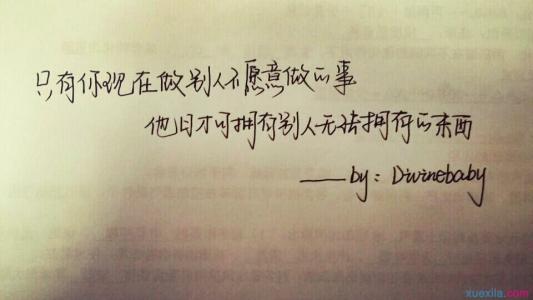 只有你现在做别人不愿意做的事
他日才可拥有别人无法拥有的东西
——by：Divinebaby
xuexila.com